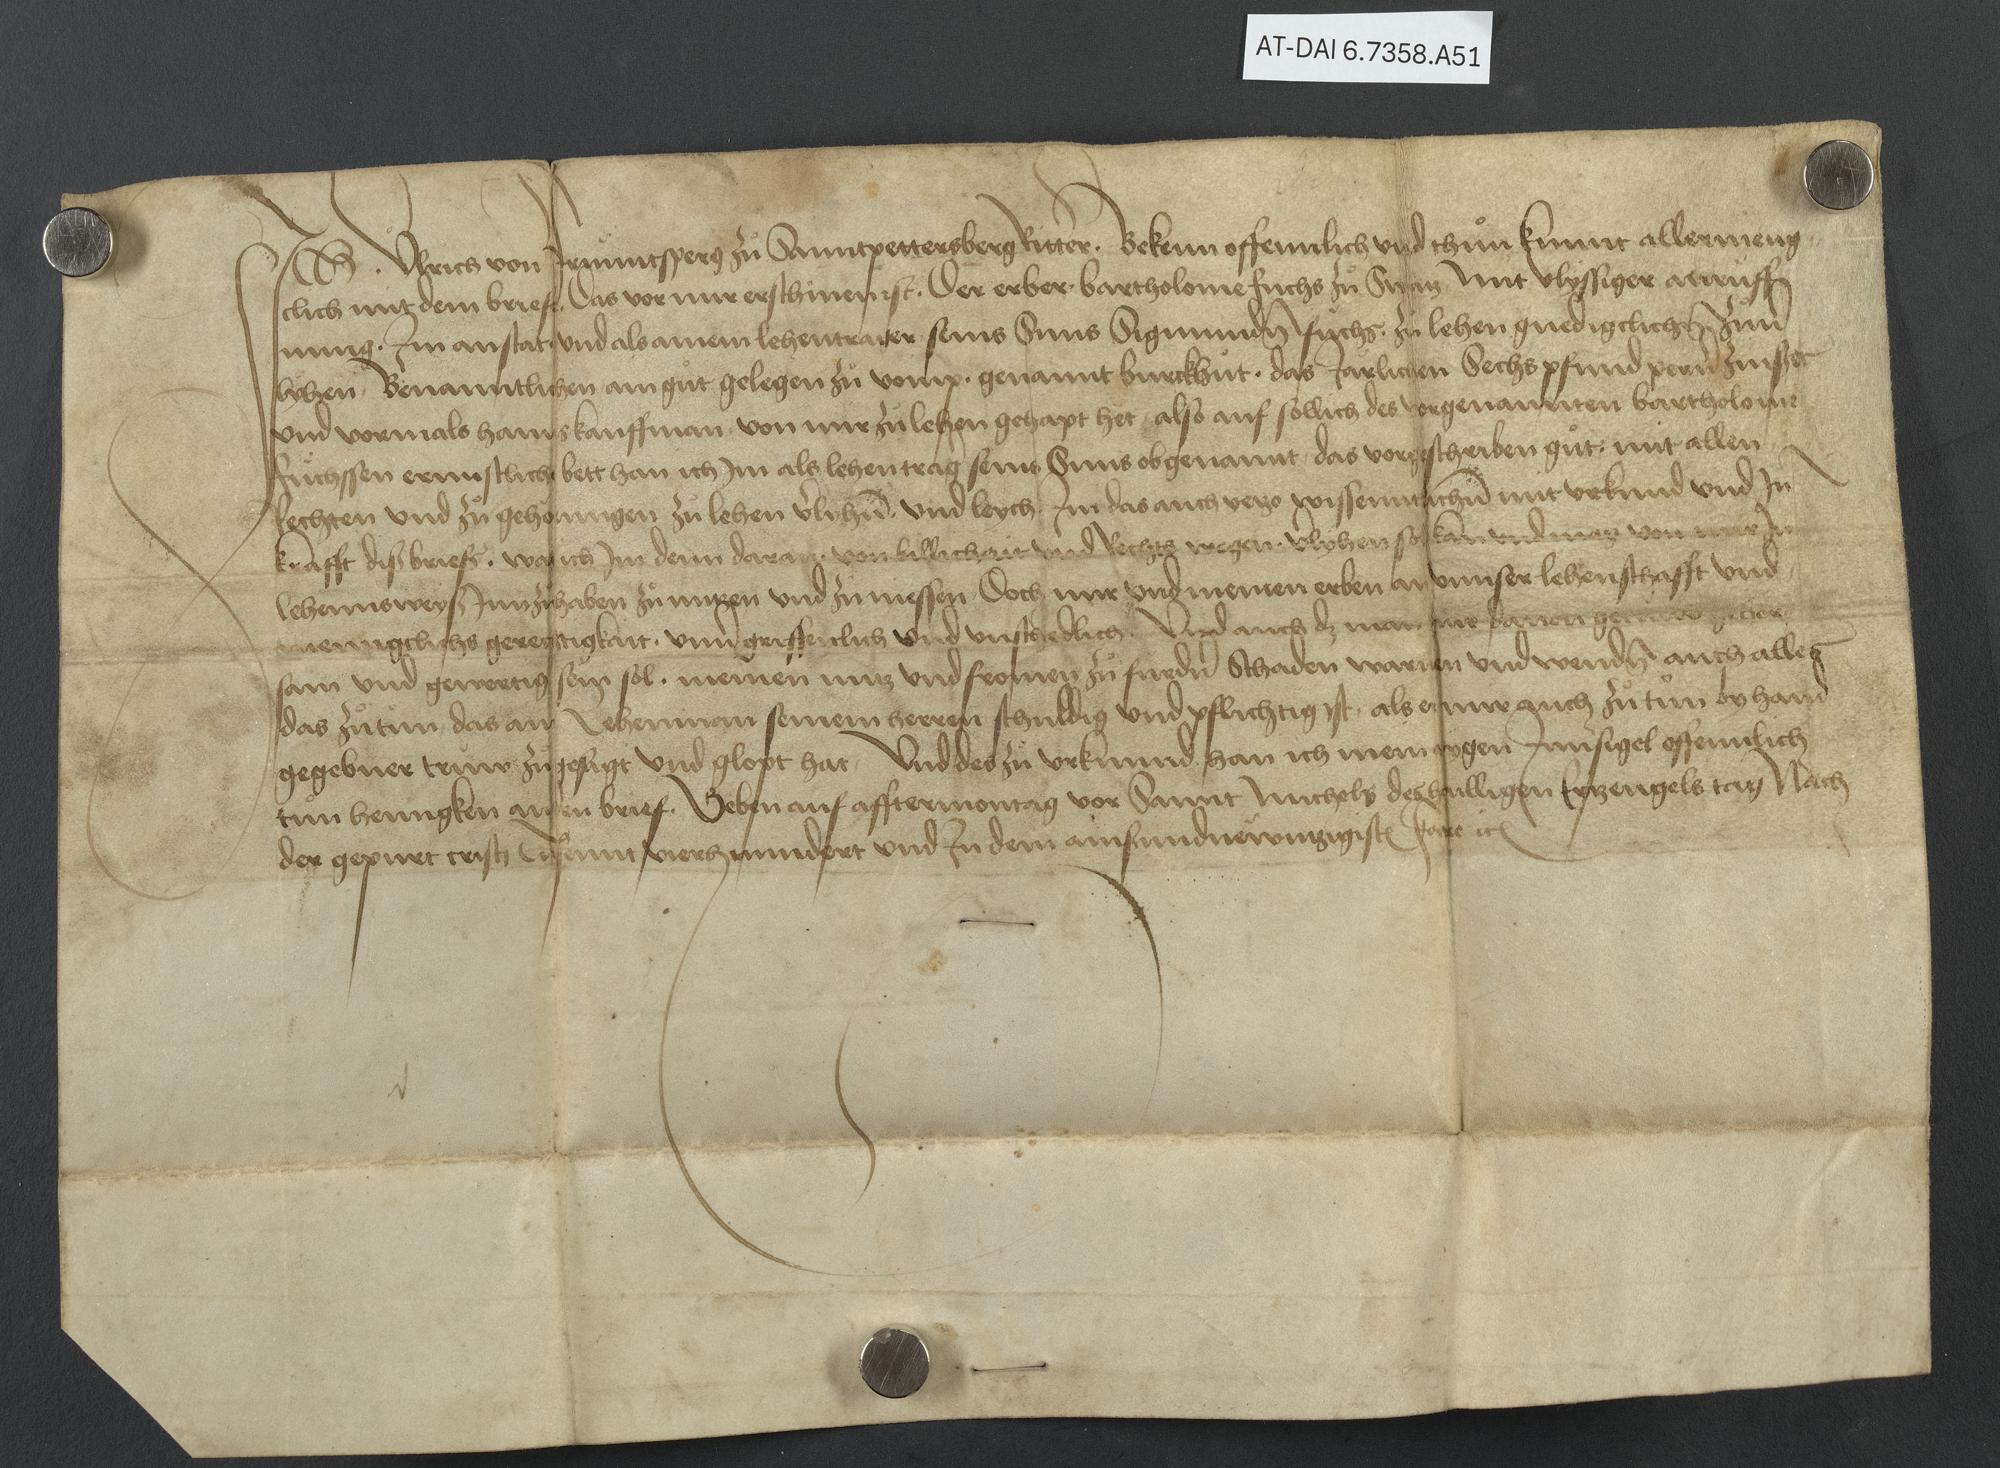 AT-DAI 6.7358.A51
Ich Ulrich von Frŭuntsperg zů Sanntpettersberg Ritter. Bekenn offennlich vnd thůn kunnt allermeng
clich mit dem brief. Das vor mir erschinen ist. Der erber bartholome fuchs zů mit vlyssiger anrŭff
nung. Im anstat vnd als ainem lehentrager seins Suns Sigmundn̄ fŭchs. zů lehen gnedigclichn̄ zuů
lyhen. Benanntlichen ain gůt gelegen zů vomp. genannt burckhůt. das Järlichen Sechs pfund pernr̄ zinset
vnd vormals hanns kauffman von mir zů lehen gehapt het. also auf sollich des vorgenannten bartholome
fŭchssen ernnstlich bett han ich Im als lehentrag seins Suns obgenannt das vorgeschriben gůt. mit allen
rechten vnd zů gehörungen zů lehen v̄lyhn̄. vnd leych. Im das auch yetzo wissenntlichn̄ mit vrkund vnd In
krafft diß briefs. was ich Im denn daran. von billichait vnd Rechts wegen. vlyhen sol kan vnd mag von mir In
lehennsweyß Innzůhaben zů nutzen vnd zů niessen Doch mir vnd meinen erben an vnnser lehenschafft vnd
mennigclichs gerechtigkait. vnuergriffenlich vnd vnschedlich. Vnd auch dz man mir dauon gehor
sam vnd gewertig sein sol. meinen nutz vnd fromen zů furdn̄ Schaden warnen vnd wendn̄ auch alles
das zů tun das ain Lehenman seinem herren schuldig vnd pflichtig ist. als er mir auch zů tun by hand
gegebner trŭw zůgesagt vnd glopt hat. Vnd des zů vrkunnd han ich mein aygen Innsigel offennlich
tun henngken an den brief. Geben auf afftermontag vor Sannt Michels des hailligen Ertzengels tag Nach
der gepurt cristj Tusennt vierhunndert vnd In dem ainsundnewntzigistn̄ Jare